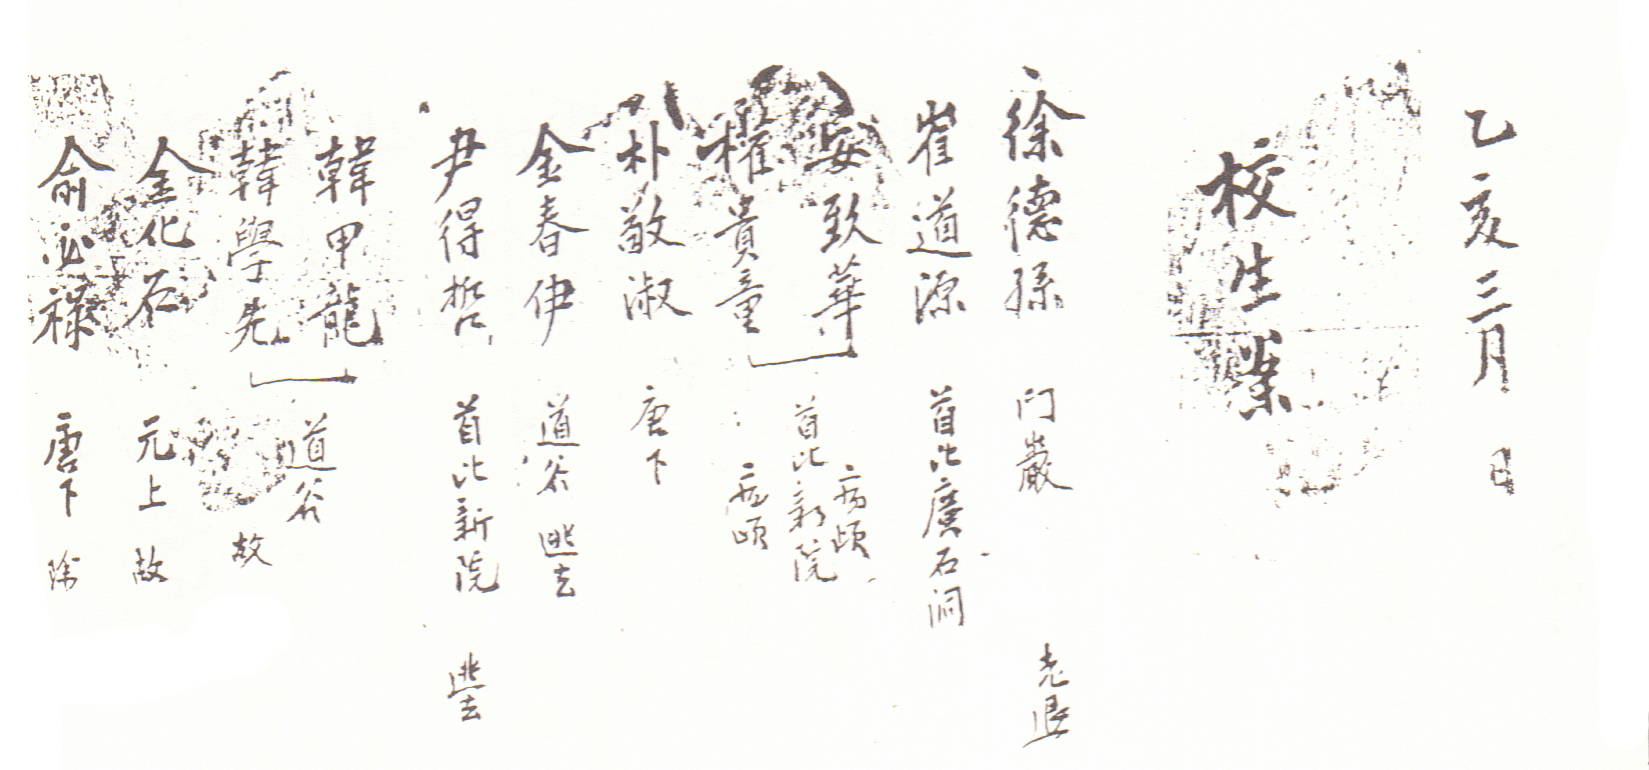 乙亥三月 日
校生案
徐德孫 門巖 老退
崔道源 首北廣石洞
安致華 首北新院 病頉
權貴童 病頉
朴敬淑 唐下
金春伊 道谷 逃去
尹得哲 首北新院 逃去
韓甲龍 道谷
韓學先 故
金化石 元上 故
俞必祿 唐下 除